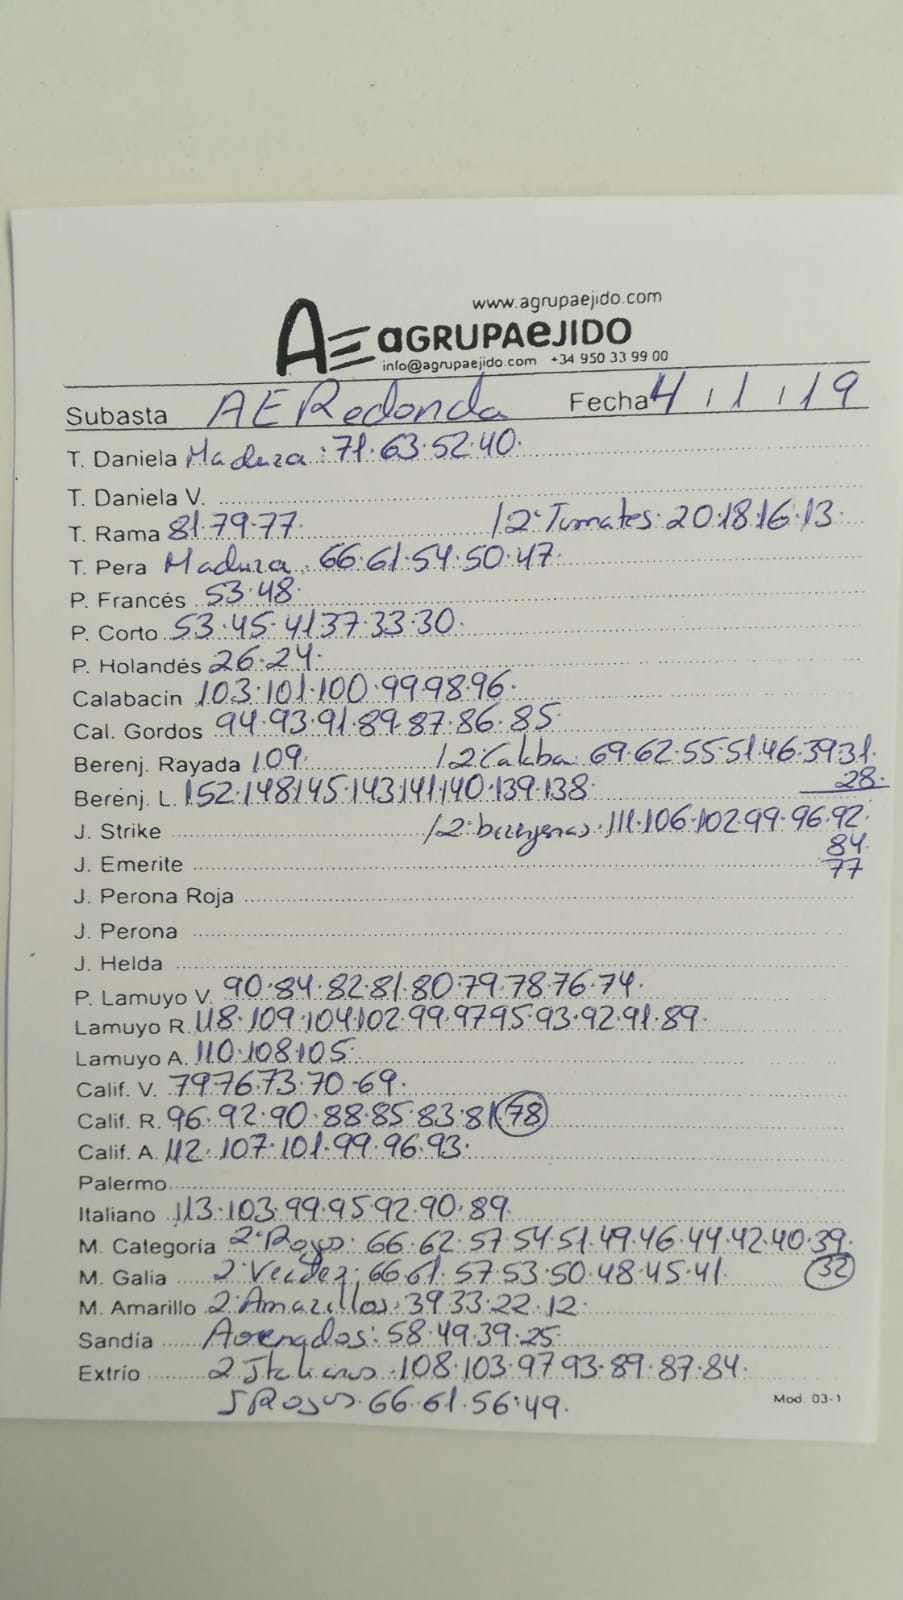 www.agrupaejido.com
AE aGRUPAeJIDO
info@agrupaejido.com +34 950 33 99 00
Subasta AE Redonda Fecha 4 / 1 / 19
T. Daniela Madura: 71.63.52.40.
T. Daniela V.
T. Rama 81.79.77. / 2ª Tomates. 20.18.16.13.
T. Pera Madura: 66.61.54.50.47.
P. Francés 53.48.
P. Corto 53.45.41.37.33.30.
P. Holandés 26.24.
Calabacin 103.101.100.99.98.96.
Cal. Gordos 94.93.91.89.87.86.85.
Berenj. Rayada 109. / 2ª Calaba. 69.62.55.51.46.39.31.
28.
Berenj. L. 152.148.145.143.141.140.139.138.
J. Strike / 2ª berenjenas. 111.106.102.99.96.92.
84.
J. Emerite 77
J. Perona Roja
J. Perona
J. Helda
P. Lamuyo V. 90.84.82.81.80.79.78.76.74.
Lamuyo R. 118.109.104.102.99.97.95.93.92.91.89.
Lamuyo A. 110.108.105.
Calif. V. 79.76.73.70.69.
Calif. R. 96.92.90.88.85.83.81.78
Calif. A. 112.107.101.99.96.93.
Palermo
Italiano 113.103.99.95.92.90.89.
M. Categoría 2ª Rojos: 66.62.57.54.51.49.46.44.42.40.39.
M. Galia 2ª Verdes: 66.61.57.53.50.48.45.41. 32
M. Amarillo 2ª Amarillos: 39.33.22.12.
Sandía Asurcados: 58.49.39.25.
Extrío 2 Italianos. 108.103.97.93.89.87.84.
J Rojos. 66.61.56.49.
Mod. 03-1